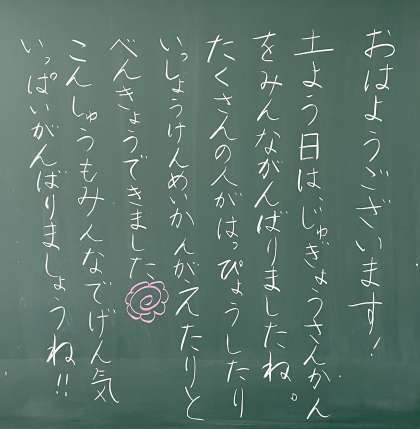 おはようございます！
土よう日は、じゅぎょうさんかん
をみんながんばりましたね。
たくさんの人がはっぴょうしたり
いっしょうけんめいかんがえたりと
べんきょうできました
こんしゅうもみんなでげん気
いっぱいがんばりましょうね!!